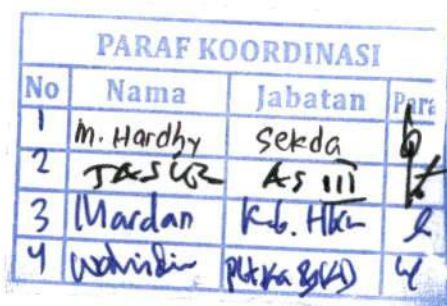 PARAF KOORDINASI
No Nama Jabatan Para
1 M. Hardhy Sekda
2 AS III
3 Mardan K.b. Hkm
4 Plt Ka BKD